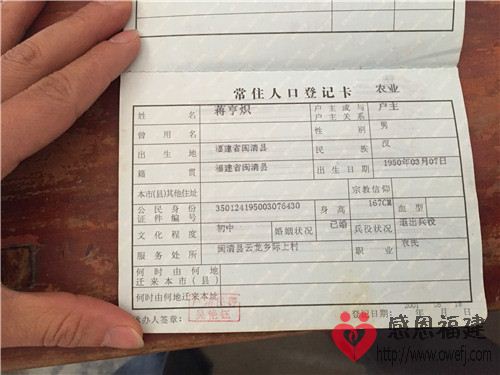 常住人口登记卡 农业
姓名 蒋亨炽 户主或与户主关系 户主
曾用名 性别 男
出生地 福建省闽清县 民族 汉
籍贯 福建省闽清县 出生日期 1950年03月07日
本市(县)其他住址 宗教信仰
公民身份证件编号 350124195003076430 身高 167CM 血型
文化程度 初中 婚姻状况 已婚 兵役状况 退出兵役
服务处所 闽清县云龙乡际上村 职业 农民
何时由何地迁来本市(县)
何时由何地迁来本址
承办人签章: 登记日期: 年 月 日
感恩福建
http://www.owefj.com